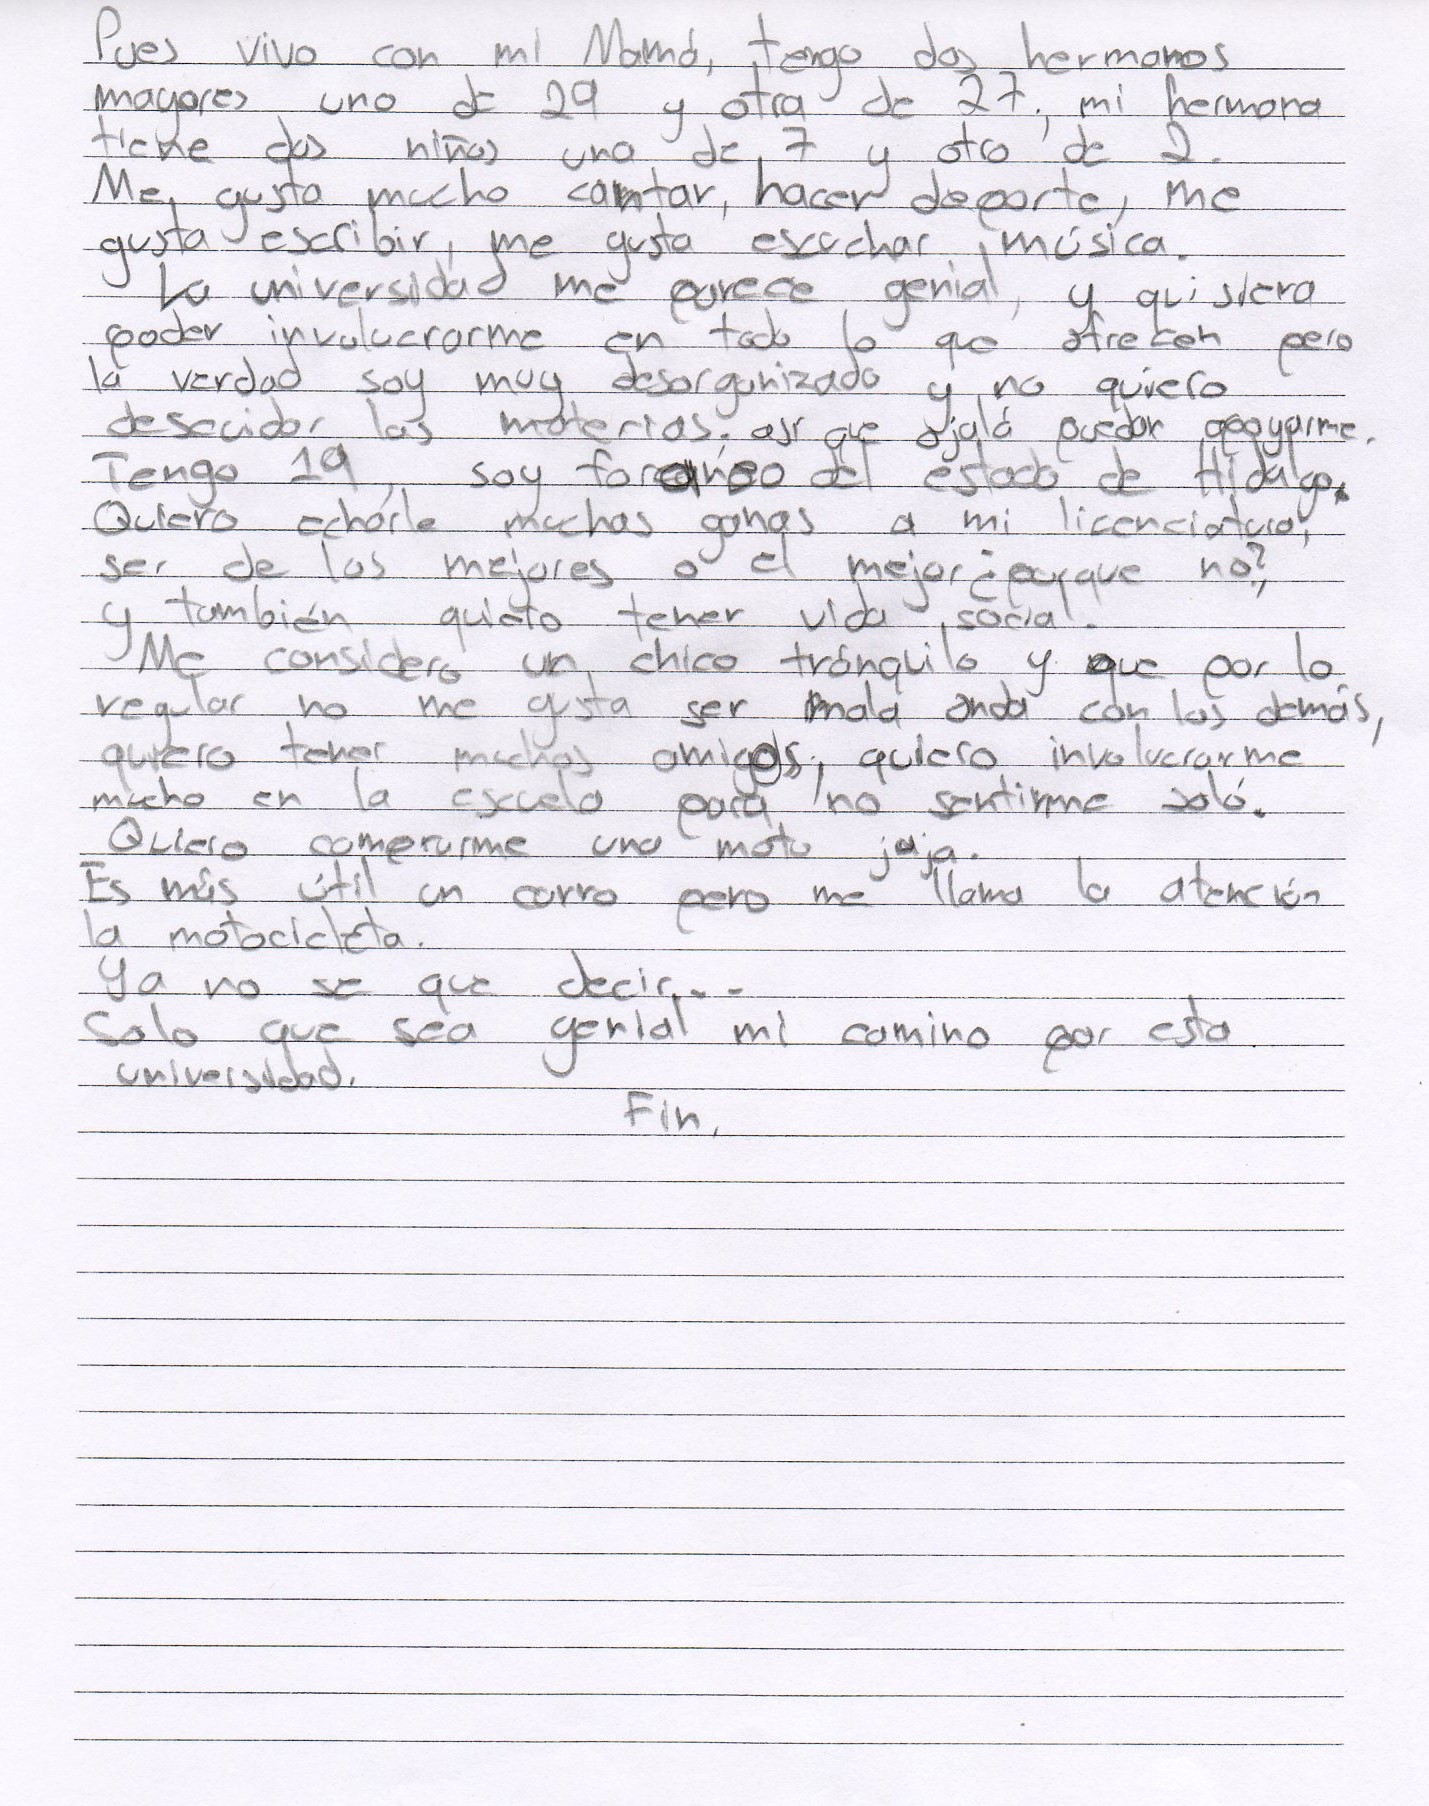 Pues vivo con mi Mamá, tengo dos hermanos
mayores uno de 29 y otra de 27, mi hermana
tiene dos niños una de 7 y otro de 2.
Me gusta mucho cantar, hacer deporte, me
gusta escribir, me gusta escuchar música.
La universidad me parece genial, y quisiera
poder involucrarme en todo lo que ofrecen pero
la verdad soy muy desorganizado y no quiero
descuidar las materias. así que ojalá puedan apoyarme.
Tengo 19, soy foraneo del estado de Hidalgo.
Quiero echarle muchas ganas a mi licenciatura,
ser de los mejores o el mejor ¿porque no?,
y también quiero tener vida social.
Me considero un chico tránquilo y que por lo
regular no me gusta ser mala onda con los demás,
quiero tener muchos amigos, quiero involucrarme
mucho en la escuela para no sentirme solo.
Quiero comprarme una moto jaja.
Es más útil un carro pero me llama la atención
la motocicleta.
Ya no se que decir...
Solo que sea genial mi camino por esta
universidad.
Fin.